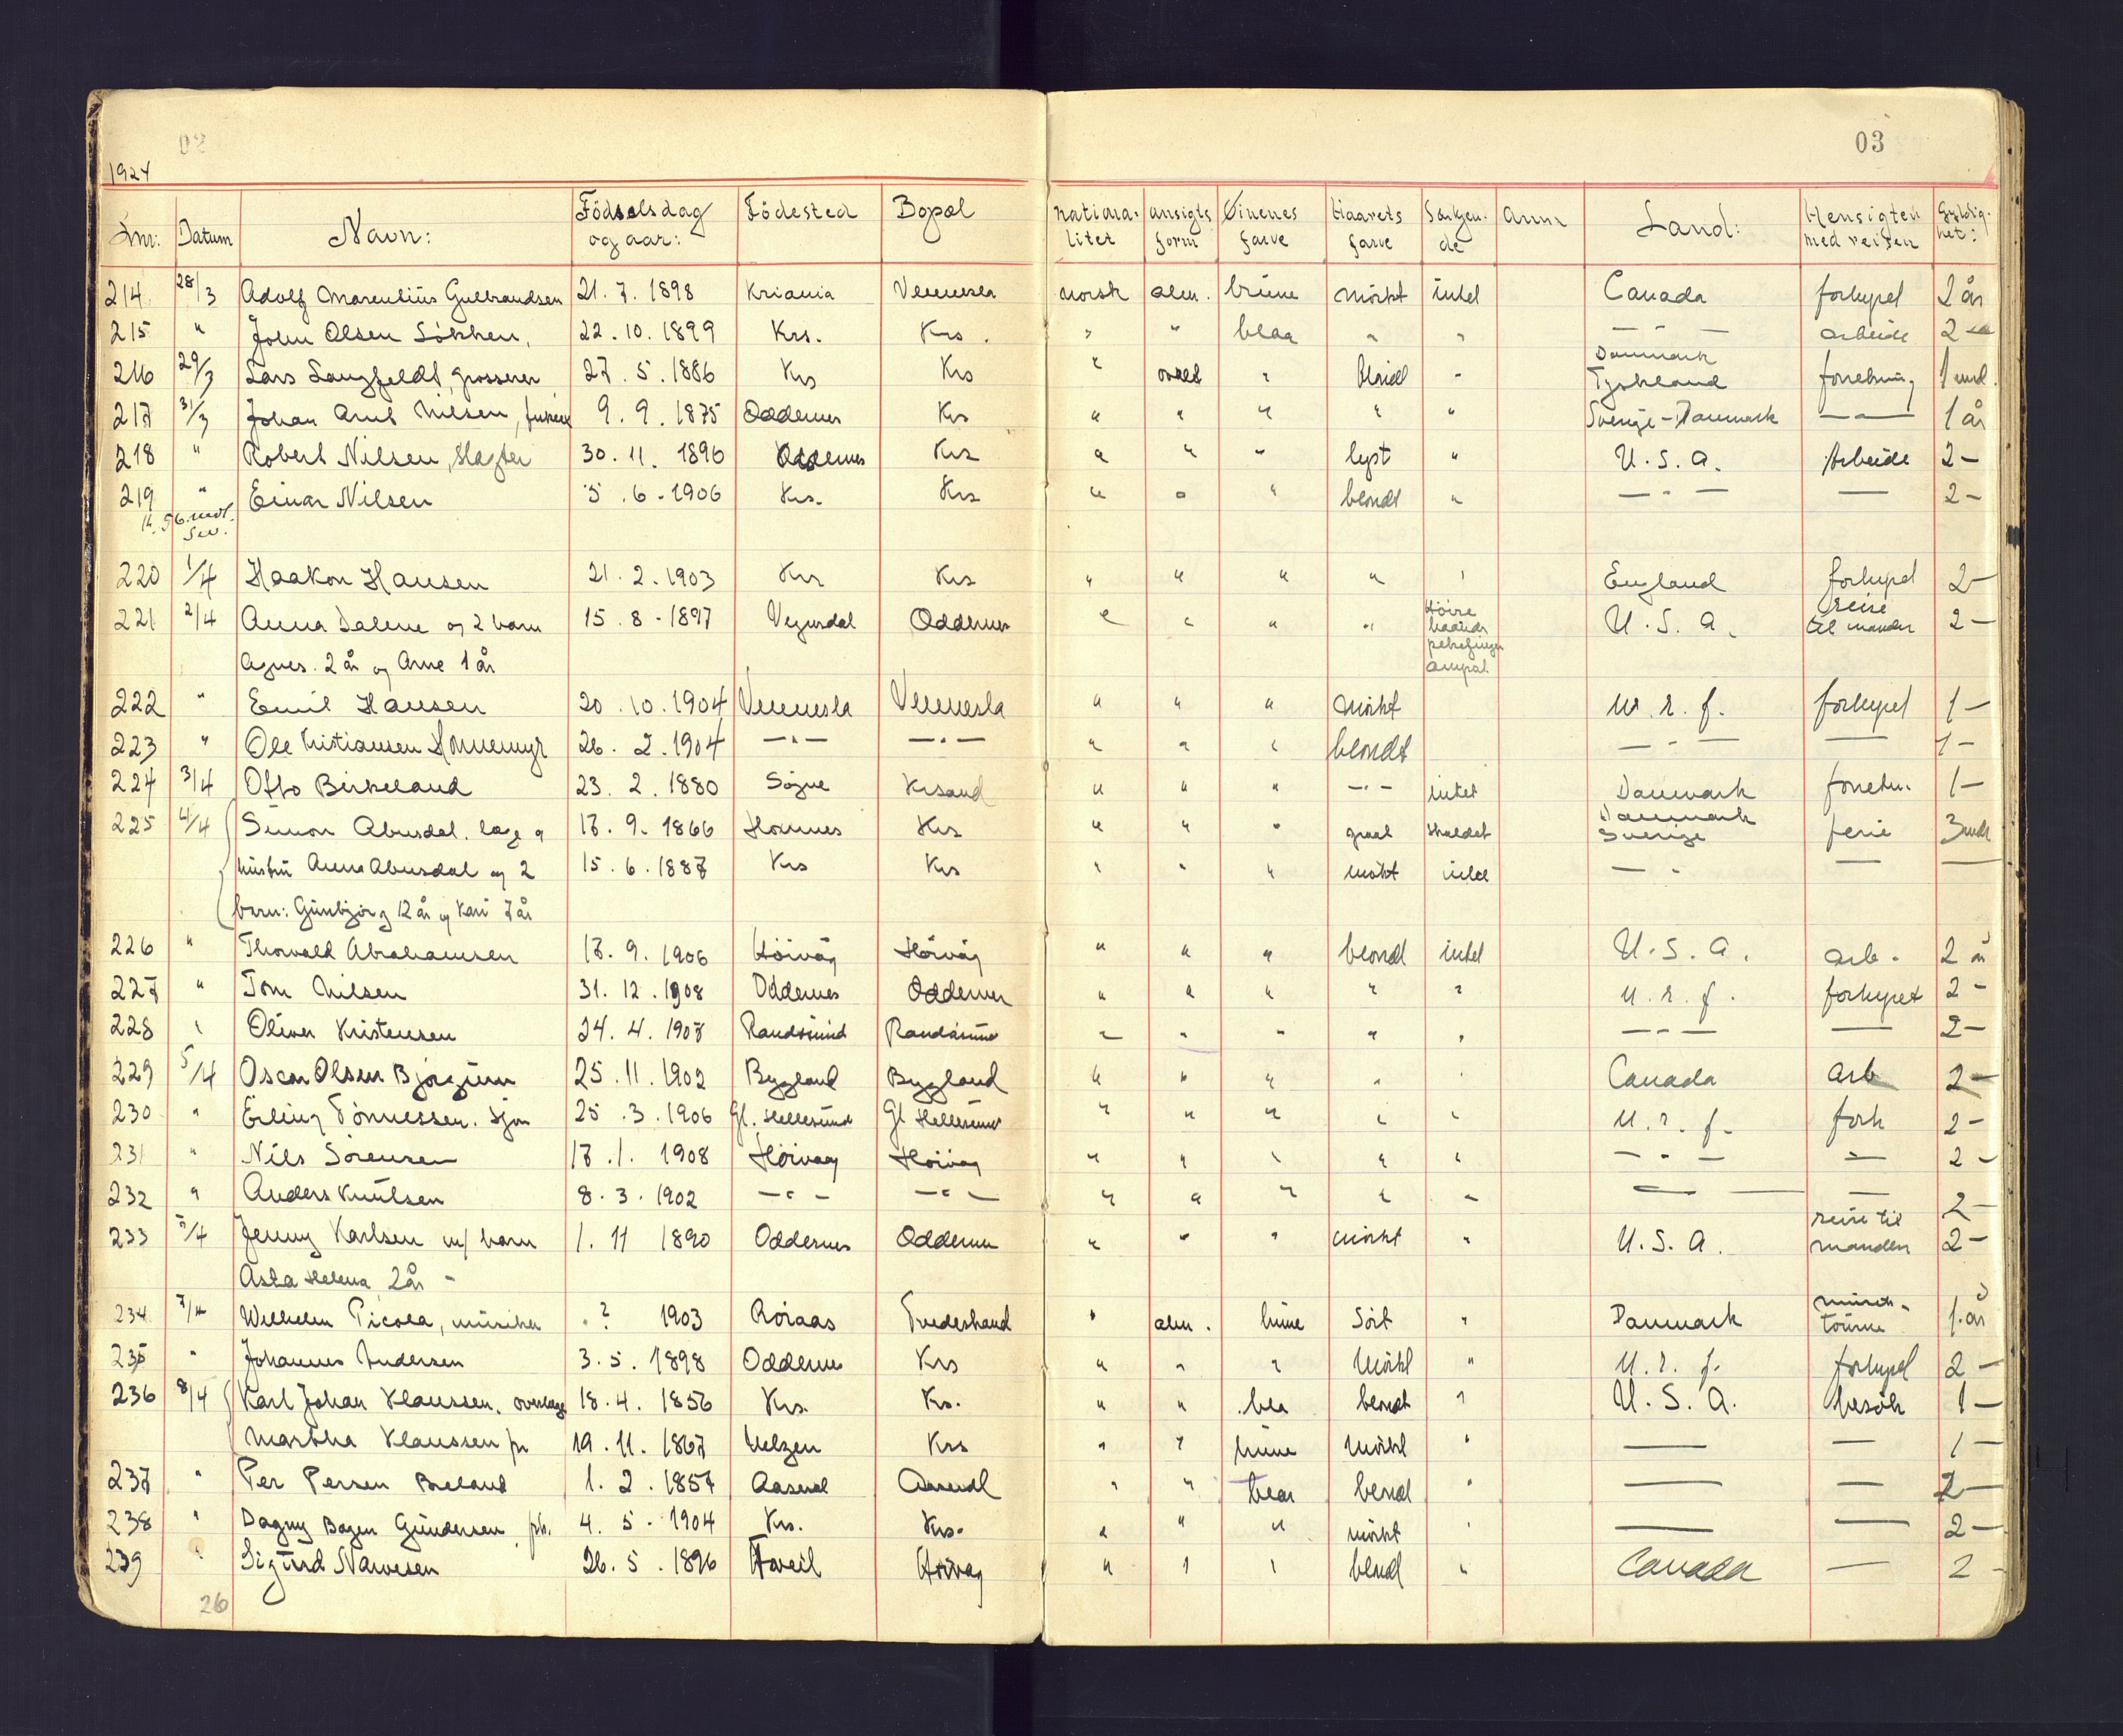 02
03
1924
Lnr: Datum Navn: Födselsdag og aar: Födested Bopæl nationalitet ansigts form Öinenes farve Haarets farve Særkjende anm Land: Hensigten med reisen Gyldighet:
214 28/3 Adolf Marentius Gulbrandsen 21.7.1898 Kriania Vennesla norsk alm. brune mörkt intet Canada forhyret 2 år
215 " John Olsen 22.10.1899 Krs. Krs. " " blaa " " — " — arbeide 2 —
216 29/3 Lars Langfeldt, grosserer 27.5.1886 Krs Krs " ovalt " blondt " Danmark Tyskland forretning 1 mnd.
217 31/3 Johan Arnt Nilsen, 9.9.1875 Oddernes Krs " " " " " Sverige - Danmark — " — 1 år
218 " Robert Nilsen, Slagter 30.11.1896 Oddernes Krs " " " lyst " U.S.A. Arbeide 2 —
219 " Einar Nilsen 5.6.1906 Krs. Krs " " " blondt " — " — — 2 —
220 1/4 Haakon Hansen 21.2.1903 Krs Krs " " " " " England forhyret 2 —
221 2/4 Anna Dalene og 2 barn 15.8.1897 Vegusdal Oddernes " " " " Höire haands pekefinger amput. U.S.A. reise til manden 2 —
Agnes. 2 år og Arne 1 år
222 " Emil Hansen 20.10.1904 Vennesla Vennesla " " " mörkt u. r. f. forhyret 1 —
223 " Ole Kristiansen 26.2.1904 — " — — " — " " " blondt — " — — 1 —
224 3/4 Otto Birkeland 23.2.1880 Søgne Krsand " " " — " — intet Danmark forretn. 1 —
225 4/4 Simon Abusdal. læge og 17.9.1866 Hornnes Krs " " " graat skaldet Danmark Sverige ferie 3 mdr
hustru Anna Abusdal og 2 15.6.1887 Krs Krs " " " mörkt intet — " — —
barn: Gunbjørg 12 år og Kari 7 år
226 " Thorvald Abrahamsen 17.9.1906 Höivåg Höivåg " " " blondt intet U.S.A. arb. 2 år
227 " Tom Nilsen 31.12.1908 Oddernes Oddernes " " " " " u. r. f. forhyret 2 —
228 " Oliver Kristensen 24.4.1907 Randösund Randösund " " " " " — " — — 2 —
229 5/4 Oscar Olsen Bjørgum 25.11.1902 Bygland Bygland " " " " " Canada arb 2 —
230 " Erling Tönnessen. sjøm 25.3.1906 Gl. Hellesund Gl Hellesund " " " " " u. r. f. forh 2 —
231 " Nils Sörensen 17.1.1908 Höivaag Höivåg " " " " " — " — — 2 —
232 " Anders Knutsen 8.3.1902 — " — — " — " " " " " — — — 2 —
233 5/4 Jenny Karlsen m/ barn 1.11 1890 Oddernes Oddernes " " " mörkt " U.S.A. reise til manden 2 —
Asta Helena 2 år —
234 7/4 Wilhelm Picola, musiker ? 1903 Röraas Tvedestrand " alm. brune Sort " Danmark musik- tourne 1. år
235 " Johannes Andersen 3.5.1898 Oddernes Krs " " " Mörkt " u. r. f. forhyret 2 —
236 8/4 Karl Johan Klaussen. overlæge 18.4.1856 Krs. Krs. " " blå blondt " U.S.A. besök 1 —
Martha Klaussen fru 19.11.1867 Uelzen Krs " " brune Mörkt " — — 1 —
237 " Per Persen Breland 1.2.1857 Aaseral Aaseral " " blaa blond " — — 2 —
238 " Dagny Bogen Gundersen, frk. 4.5.1904 Krs. Krs. " " " mörkt " — — 2 —
239 " Sigurd Narvesen 26.5.1896 Höivåg " " " blond " Canada — 2 —
26